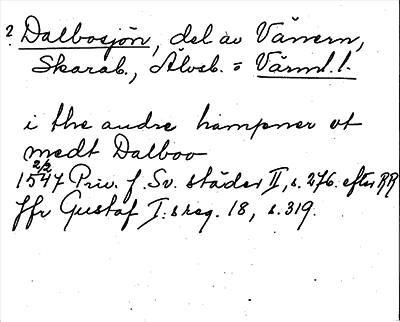 ? Dalbosjön, del av Vänern,
Skarab., Älvsb. o Värml. l.
i the andre hampner ut
medt Dalboo
22/2
1547 Priv. f. Sv. städer II, s. 276. efter RR
Jfr Gustaf I:s reg. 18, s. 319.